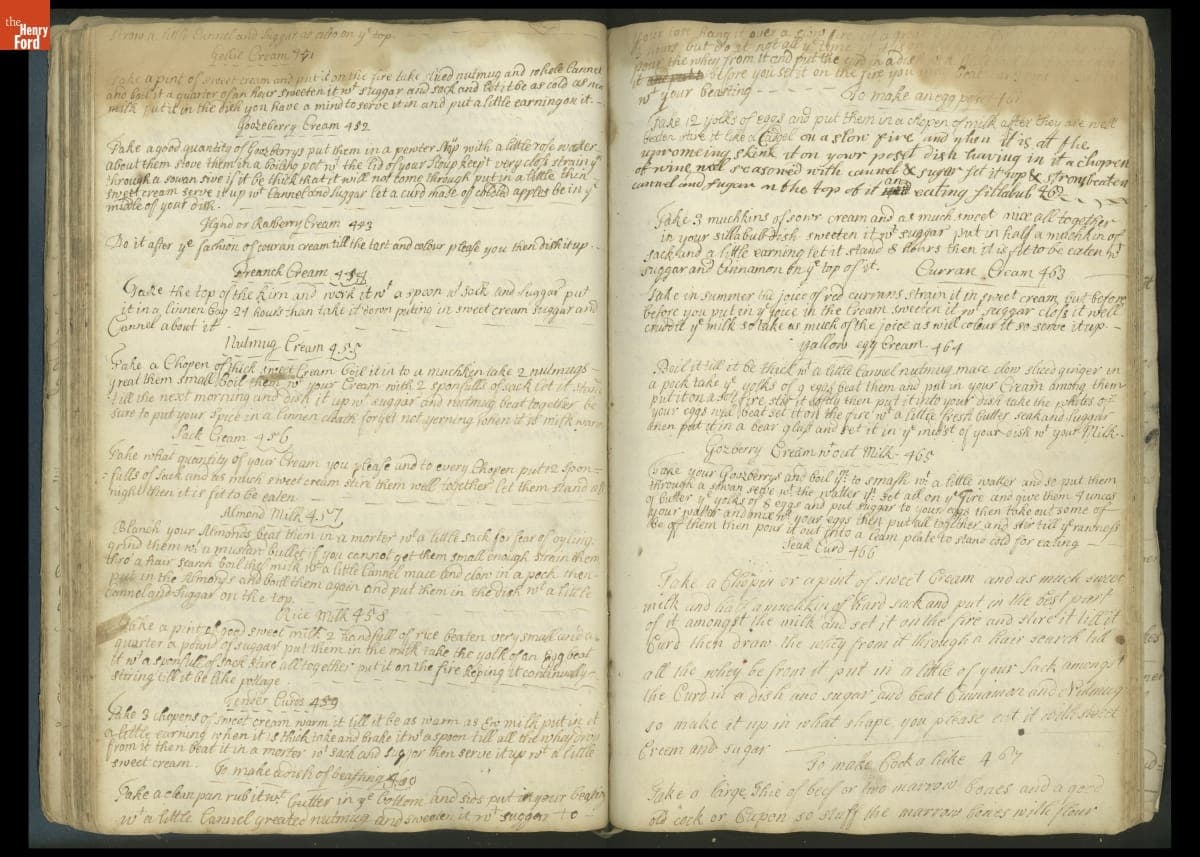 the
Henry
Ford
strow a little Cannel and Suggar as also on yᵉ top.
Gellie Cream 451
Take a pint of sweet cream and put it on the fire take sliced nutmug and whole Cannel
and boil it a quarter of an hour sweeten it wᵗ suggar and sack and let it be as cold as new
milk put it in the dish you have a mind to serve it in and put a little earning on it.
Goozeberry Cream 452
Take a good quantity of Goozberrys put them in a pewter stoup with a little rose water
about them stove them in a boiling pot wᵗ the lid of your stoup kept very closs strain yᵐ
through a sowan sive if it be thick that it will not come through put in a little thin
sweet cream serve it up wᵗ Cannel and suggar let a curd made of codled apples be in yᵉ
middle of your dish.
Hynd or Rasberry Cream 453
Do it after yᵉ fashion of cowran cream till the tast and colour please you then dish it up.
Freanck Cream 454
Take the top of the kirn and work it wᵗ a spoon wᵗ sack and suggar put
it in a linnen bag 24 hours than take it down puting in sweet cream suggar and
Cannel about it
Nutmug Cream 455
Take a Chopen of thick sweet Cream boil it in to a muchken take 2 nutmugs
great them small boil them wᵗ your Cream with 2 sponfulls of sack let it stand
till the next morning and dish it up wᵗ suggar and nutmug beat together be
sure to put your spice in a linnen cloath forget not yerning when it is milk warm
Sack Cream 456
Take what quantity of your Cream you please and to every Chopen put 12 spon=
=fulls of sack and as much sweet cream stire them well together let them stand all
night then it is fit to be eaten
Almond Milk 457
Blansh your Almonds beat them in a morter wᵗ a little sack for fear of oyling
grind them wᵗ a mustart bullet if you cannot get them small enough strain them
thro a hair search boil the milk wᵗ a little Cannel mace and clow in a pock then
put in the Almonds and boill them again and put them in the dish wᵗ a little
cannel and suggar on the top.
Rice Milk 458
Take a pint of good sweet milk 2 handfull of rice beaten very small and a
quarter a pound of suggar put them in the milk take the yolk of an egg beat
it wᵗ a sponfull of sack stire all together put it on the fire keping it continually
stiring till it be like pottage
Tender Curds 459
Take 3 chopens of sweet cream warm it till it be as warm as Ew milk put in it
a little earning when it is thick take and brake it wᵗ a spoon till all the whay
from it then beat it in a morter wᵗ sack and sugar then serve it up wᵗ a little
sweet cream.
To make a dish of beasting 460
Take a clean pan rub it wᵗ butter in yᵉ bottom and sids put in your beasting
wᵗ a little Cannel greated nutmug and sweeten it wᵗ suggar to
your tast hang it over a slow fire
hours but do it not all yᵉ time
pour the whey from it and put the curd in a dish
it before you set it on the fire you
wᵗ your beasting
To make an egg poset 461
Take 12 yolks of eggs and put them in a chopen of milk after they are well
beaten stire it like a Cadel on a slow fire and when it is at the
upcomeing skink it on your poset dish having in it a chopen
of wine well seasoned with cannel & sugar set it up & strow beaten
cannel and sugar on the top of it an eating sillabub 462
Take 3 muchkins of sowr cream and as much sweet mix all together
in your sillabub dish sweeten it wᵗ suggar put in half a muchkin of
sack and a little earning let it stand 8 hours then it is fit to be eaten wᵗ
suggar and cinnamon on yᵉ top of it.
Curran Cream 463
Take in summer the joice of red currans strain it in sweet cream but before
before you put in yᵉ joice in the cream sweeten it wᵗ suggar closs it well
crudd it yᵉ milk so take as much of the joice as will colour it so serve it up.
Yallow egg Cream 464
Boil it till it be thick wᵗ a little cannel nutmug mace clow sliced ginger in
a pock take yᵉ yolks of 9 eggs beat them and put in your Cream among them
put it on a soft fire stir it softly then put it into your dish take the whites of
your eggs well beat set it on the fire wᵗ a little fresh butter seak and suggar
then put it in a bear glass and set it in yᵉ midst of your dish wᵗ your Milk.
Gozberry Cream wᵗout Milk 465
Take your Goozberrys and boil yᵐ to smash wᵗ a little watter and so put them
through a sowan serve wᵗ the watter yⁿ set all on yᵉ fire and give them 4 uncas
of butter yᵉ yolks of 8 eggs and put suggar to your eggs then take out some of
your watter and mix wᵗ your eggs then put all together and stir till yᵉ rawness
be off them then pour it out into a leam plate to stand cold for eating
Seak Curd 466
Take a Chopen or a pint of sweet Cream and as much sweet
milk and half a muchkin of hard sack and put in the best part
of it amongst the milk and set it on the fire and stire it till it
Curd then draw the whey from it through a hair search till
all the whey be from it put in a little of your sack amongst
the Curd in a dish and sugar and beat Cinnamon and Nutmug
so make it up in what shape you please eat it with sweet
Cream and sugar
To make Cock a like 467
Take a large thie of beef or two marrow bones and a good
old cock or Capon so stuff the marrow bones with flour